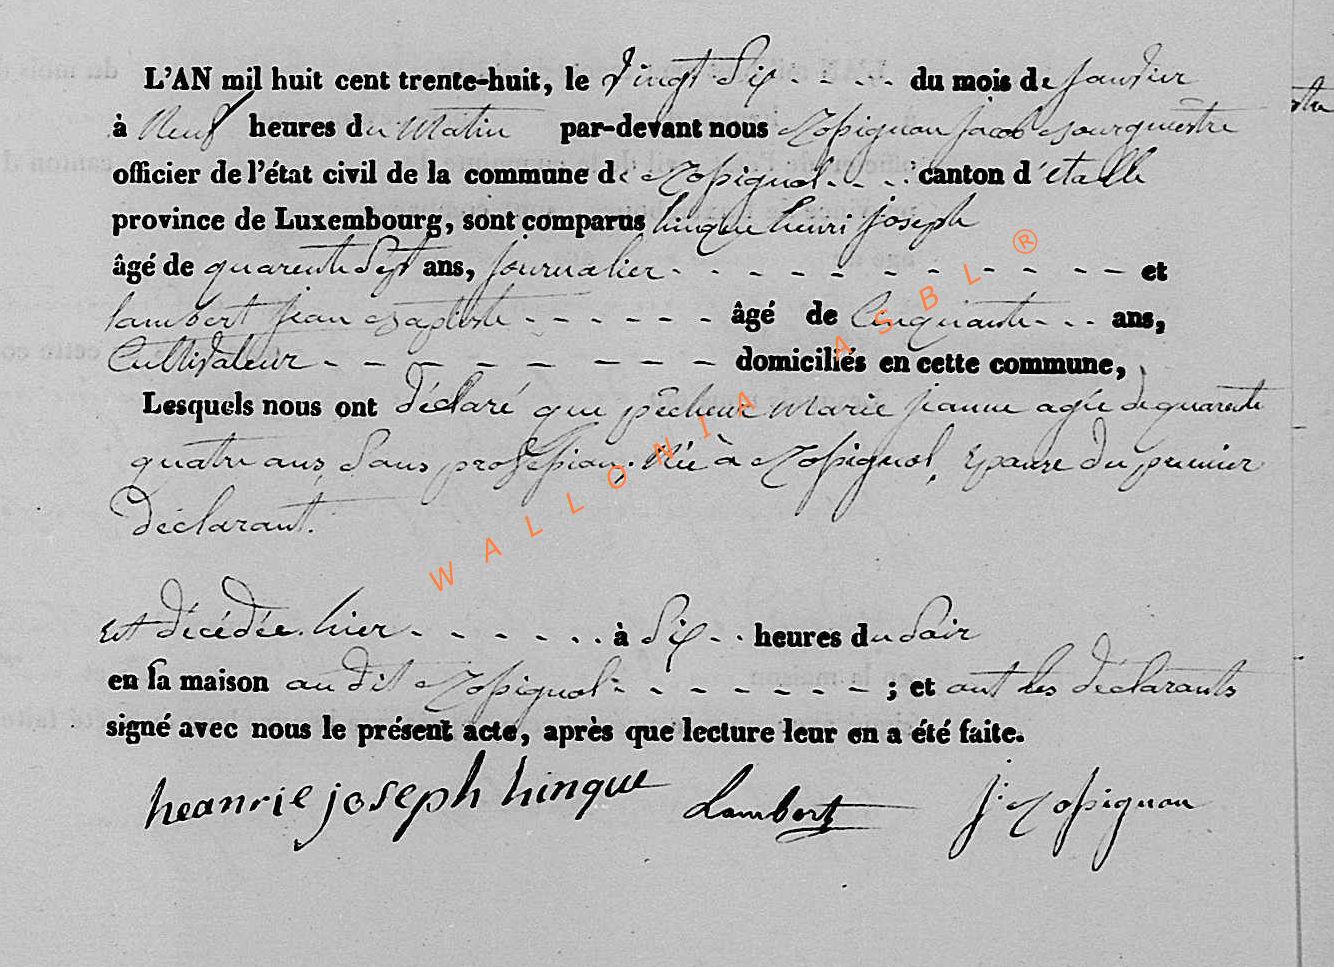 L'AN mil huit cent trente-huit, le vingt six - - - - du mois de janvier
à Neuf heures du Matin par-devant nous Rossignon jacob Bourguestre
officier de l'état civil de la commune de Rossignol - - - canton d'étalle
province de Luxembourg, sont comparus hinque henri joseph
âgé de quarente Sept ans, journalier - - - - - - - - - - - - et
lambert jean Baptiste - - - - - - âgé de Cinquante - - - ans,
Cultivateur - - - - - - - - domiciliés en cette commune,
Lesquels nous ont déclaré que pêcheur Marie jeanne agée de quarente
quatre ans, Sans profession, Née à Rossignol, Epouse du premier
déclarant.
Est décédée hier - - - - - - - à Six - - heures du Soir
en sa maison au dit Rossignol - - - - - - - - ; et ont les déclarants
signé avec nous le présent acte, après que lecture leur en a été faite.
heanrie joseph hinque Lambert J. Rossignon
WALLONIA ASBL ®